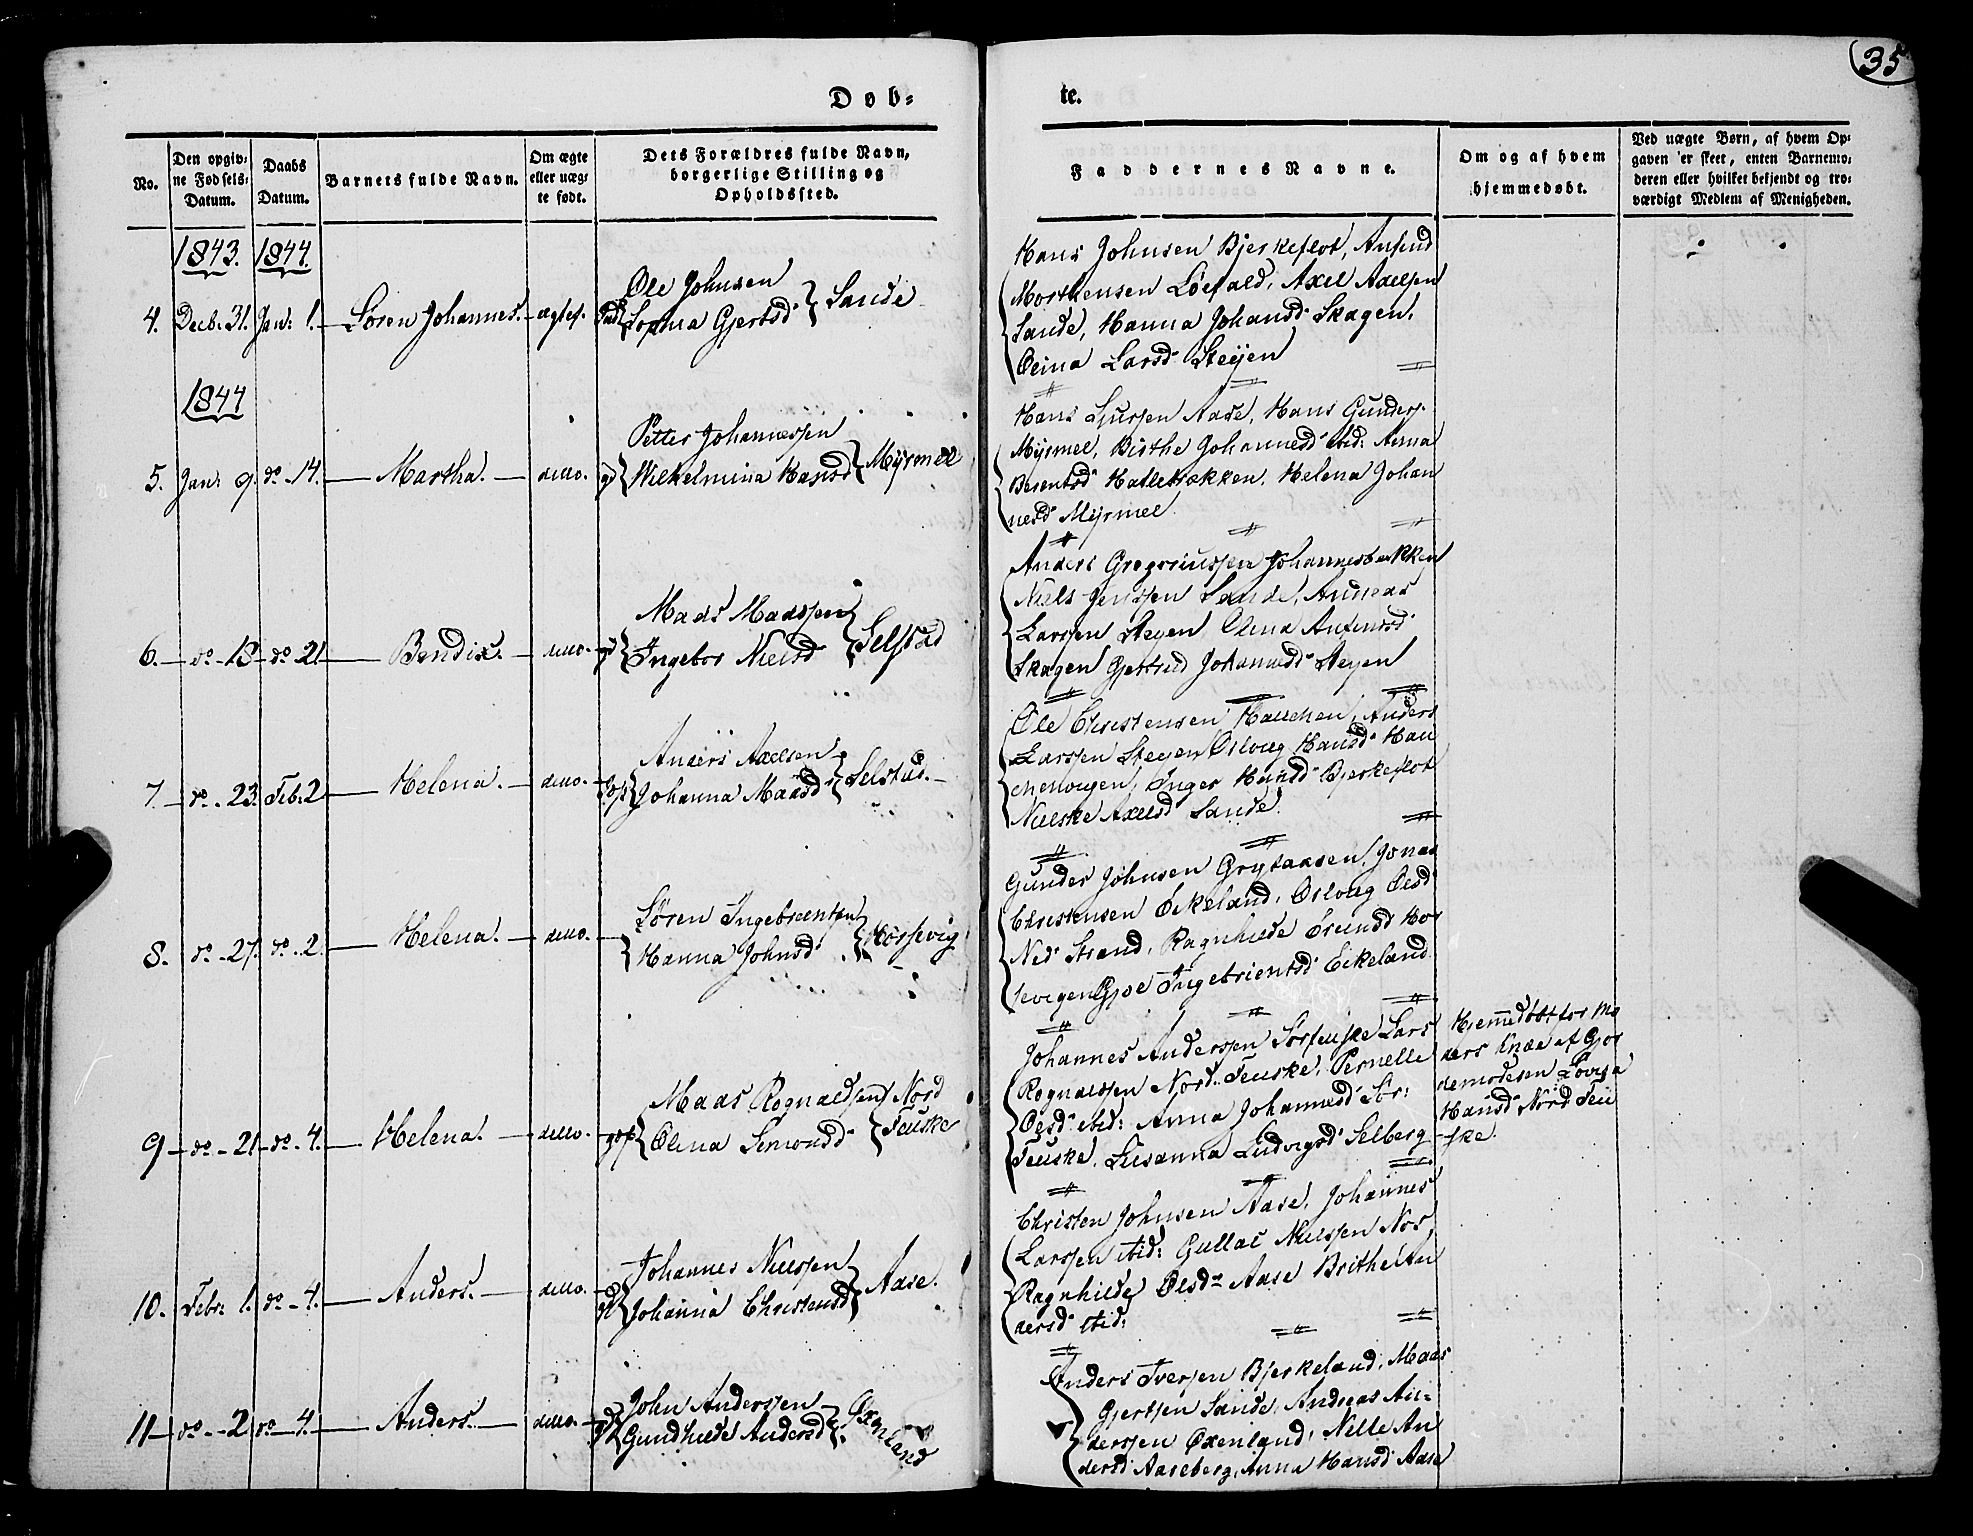 35
Døb-
te.
No.
Den opgiv-
ne Fødsels-
Datum.
Daabs
Datum.
Barnets fulde Navn.
Om ægte
eller uæg-
te født.
Dets Forældres fulde Navn,
borgerlige Stilling og
Opholdssted.
Faddernes Navne.
Om og af hvem
hjemmedøbt.
Ved uægte Børn, af hvem Op-
gaven er skeet, enten Barnemo-
deren eller hvilket bekjendt og tro-
værdigt Medlem af Menigheden.
1843. 1844.
4. Decb. 31. Jan: 1. Søren Johannes.
Ole Johnsen
Sophia Gjertsd Sande
Hans Johnsen Bjerkeflot, Anfind
Morthensen Löefald, Axel Axelsen
Sande, Hanna Johansd Skagen,
Olina Larsd Steyen
1844
5. Jan: 9. do 14. Martha. detto.
Petter Johannessen
Wilhelmina Hansd Myrmel
Hans Sjursen Aase, Hans Gunders.
Myrmel, Birthe Johannesd ibid: Anna
Berentsd Hatletrækken, Helena Johan
nesd Myrmel
6. do 18 do 21 Bendix. detto.
Maas Maassen
Ingebor Nielsd Selstad
Anders Gregoriussen Johannesbakken
Niels Jenssen Sande, Andreas
Larssen Steyen, Olina Anfinsd
Skagen Gjertrud Johannesd Steyen
7. do 23. Feb. 2 Helena. detto.
Anders Axelsen
Johanna Maasd Selstad.
Ole Christensen Hauchen, Anders
Larssen Steyen Osloug Hansd Hau
chenougen, Inger Hansd Bjerkeflot
Nielske Axelsd Sande.
8. do 27. do 2. Helena. detto.
Søren Ingebrientsen
Hanna Johnsd Horsevig
Gunder Johnsen Grytaasen, Jonas
Christensen Eikeland, Osloug Olsd
Ned Strand, Ragnhilde Hor
sevigen, Ingebrientsd Eikeland
9 do 21 do 4. Helena. detto.
Maas Rognaldsen Nord
Olina Simonsd Feuske
Johannes Anderssen Sörfeuske Lars
Rognalssen Nord Feuske, Pernelle
Olesd ibid: Anna Johannesd Sör:
Feuske, Susanna Ludvigsd Selberg
Hjemmedöbt for Mo
ders Knæe af Gjor
demodesen Lovisa
Hansd Nord Feu
ske.
10. Febr: 1. do 4. Anders. detto.
Johannes Nielssen
Johanna Christensd Aase.
Christen Johnsen Aase, Johannes
Larssen ibid: Gullac Nielssen Nor,
Ragnhilde Olsdr Aase Brithe An
dersd ibid:
11 do 2 do 4. Anders. detto.
John Anderssen
Gundhilde Andersd Øxenland
Anders Iversen Bjerkeland, Maas
Gjertsen Sande, Andreas An-
derssen Øxenland, Nille An
dersd Aaseberg, Anna Hansd Aase